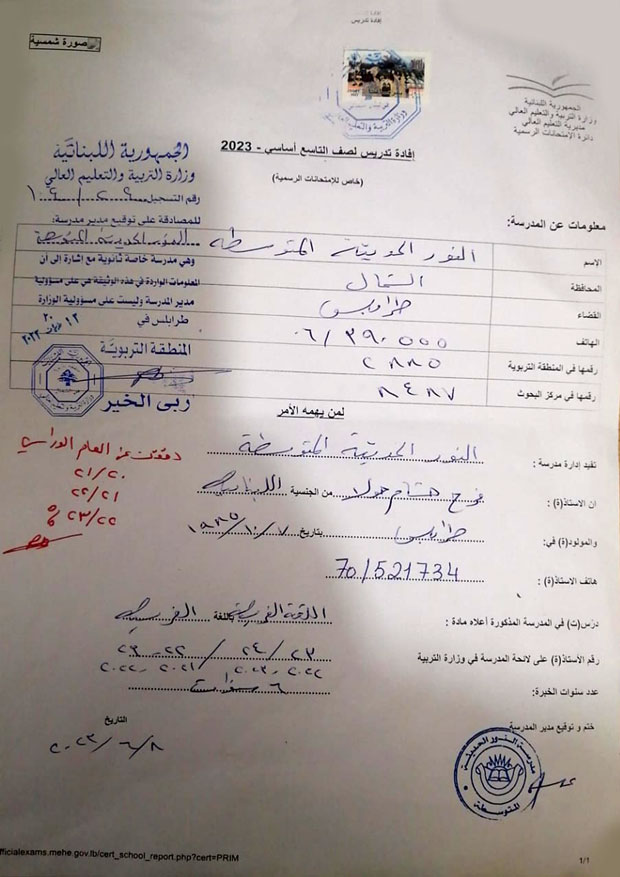 إفادة تدريس
صورة شمسية
الجمهورية اللبنانية
وزارة التربية والتعليم العالي
مديرية التعليم العالي
دائرة الامتحانات الرسمية
إفادة تدريس لصف التاسع أساسي - 2023
(خاص للإمتحانات الرسمية)
الجمهورية اللبنانية
وزارة التربية والتعليم العالي
رقم التسجيل
للمصادقة على توقيع مدير مدرسة:
النور الحديثة المتوسطة
وهي مدرسة خاصة ثانوية مع إشارة إلى أن
المعلومات الواردة في هذه الوثيقة هي على مسؤولية
مدير المدرسة وليست على مسؤولية الوزارة
طرابلس في
المنطقة التربوية
ربى الخير
معلومات عن المدرسة:
الاسم النور الحديثة المتوسطة
المحافظة الشمال
القضاء طرابلس
الهاتف ٠٦/٣٩٠٥٥٥
رقمها في المنطقة التربوية ٢٨٨٥
رقمها في مركز البحوث ٨٤٨٧
لمن يهمه الأمر
تفيد إدارة مدرسة : النور الحديثة المتوسطة
ان الاستاذ(ة) : فرح هشام من الجنسية اللبنانية
والمولود(ة) في: طرابلس بتاريخ ١٩٨٥/١٠/٧
هاتف الاستاذ(ة) : 70/521734
درّس(ت) في المدرسة المذكورة أعلاه مادة : اللغة الفرنسية باللغة الفرنسية
رقم الأستاذ(ة) على لائحة المدرسة في وزارة التربية ٢٤/٢٣ / ٢٢-٢٣
٢٠٢٢-٢٠٢٣ ٢٠٢١-٢٠٢٢
عدد سنوات الخبرة: ٦ سنوات
من العام الدراسي
٢١/٢٠
٢٢/٢١
٢٣/٢٢
التاريخ
٢٠٢٣/٦/٨
ختم و توقيع مدير المدرسة
مدرسة النور الحديثة
المتوسطة
fficialexams.mehe.gov.lb/cert_school_report.php?cert=PRIM
1/1